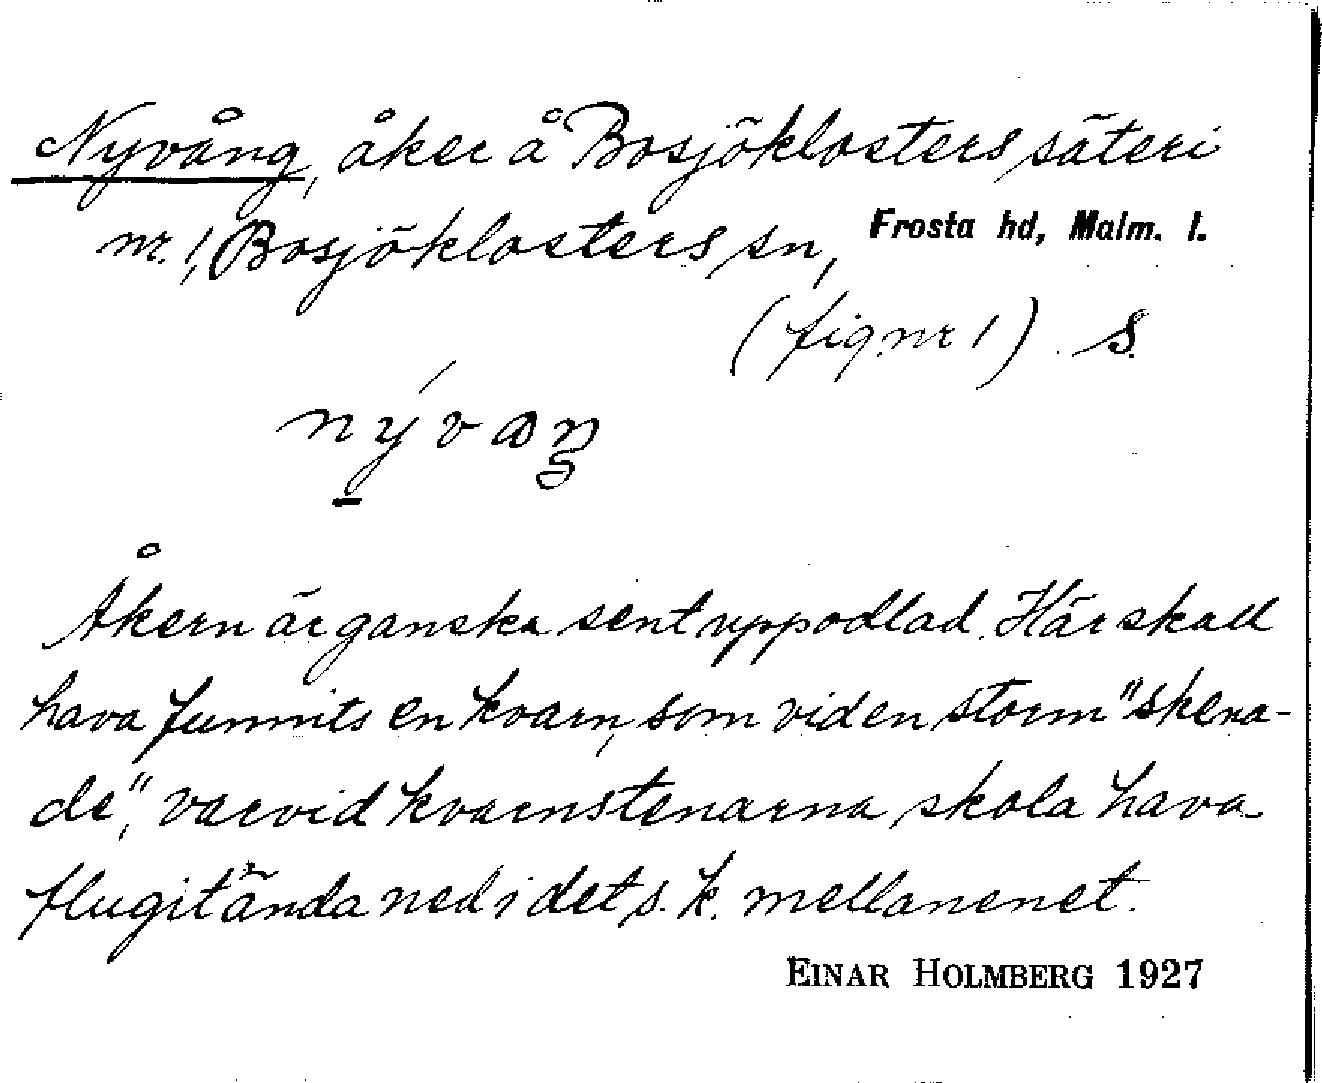 Nyvång, åker å Bosjöklosters säteri
nr. 1, Bosjöklosters sn, Frosta hd, Malm. l.
(fig. nr 1) S.
nývaŋ
Åkern är ganska sent uppodlad. Här skall
hava funnits en kvarn, som vid en storm "skena-
de", varvid kvarnstenarna skola hava
flugit ända ned i det s. k. mellanenet.
EINAR HOLMBERG 1927